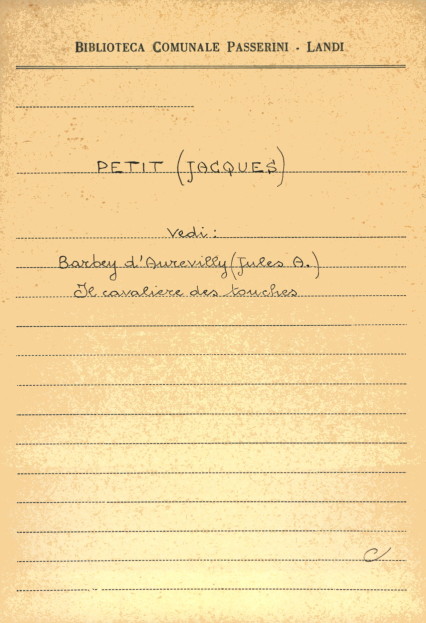 BIBLIOTECA COMUNALE PASSERINI - LANDI
PETIT (JACQUES)
Vedi:
Barbey d'Aurevilly (Jules A.)
Il cavaliere des touches
C